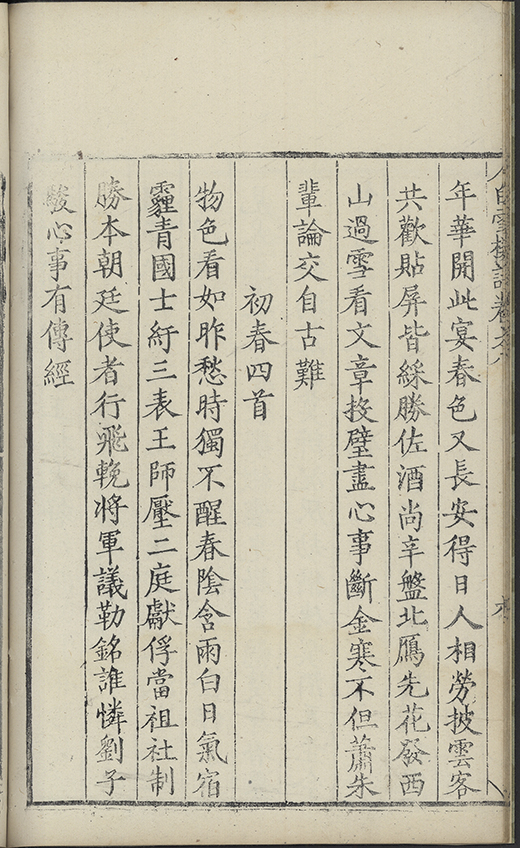 白雪樓詩卷之
年華開此宴春色又長安得日人相勞披雲客
共歡貼屏皆綵勝佐酒尚辛盤北鴈先花發西
山過雪看文章投璧盡心事斷金寒不但蕭朱
輩論交自古難
初春四首
物色看如昨愁時獨不醒春陰含雨白日氣宿
霾青國士紆三表王師壓二庭獻俘當祖社制
勝本朝廷使者行飛輓將軍議勒銘誰憐劉子
駿心事有傳經